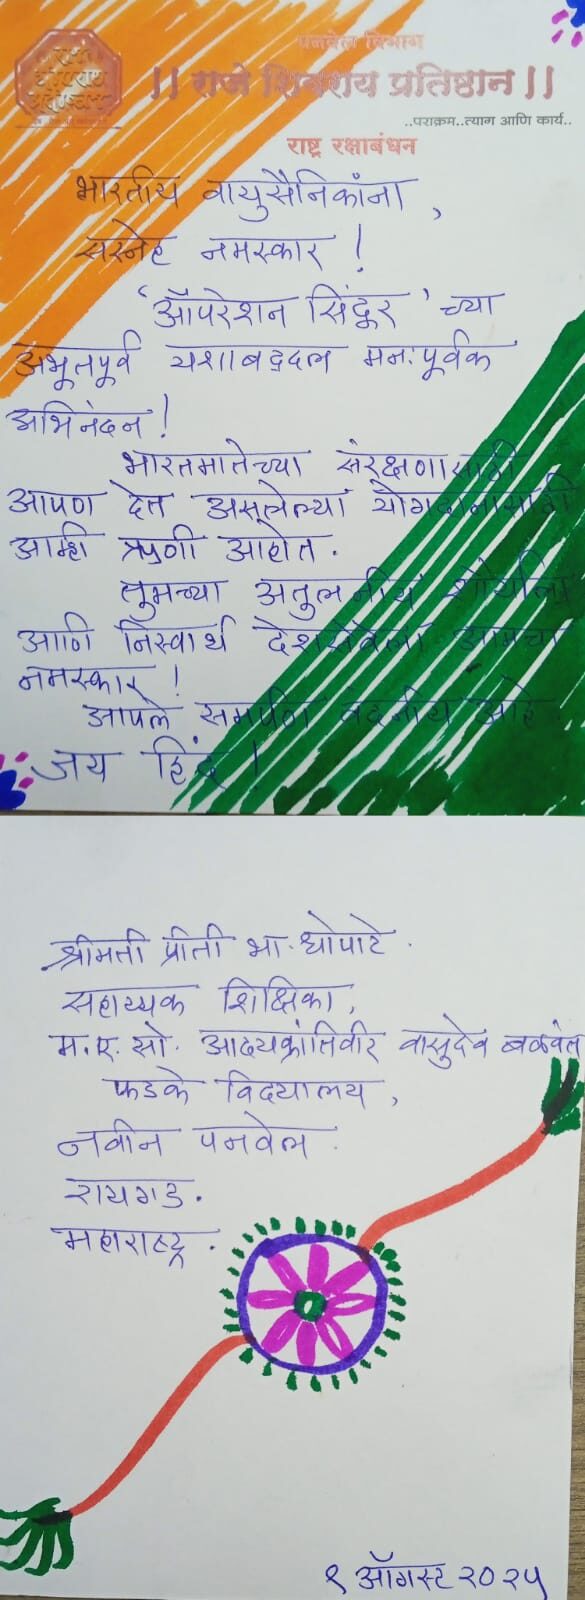 पनवेल विभाग
|| राजे शिवराय प्रतिष्ठान ||
..पराक्रम..त्याग आणि कार्य..
राष्ट्र रक्षाबंधन
भारतीय वायुसैनिकांना,
सस्नेह नमस्कार !
'ऑपरेशन सिंदूर' च्या
अभूतपूर्व यशाबद्दल मनःपूर्वक
अभिनंदन !
भारतमातेच्या संरक्षणासाठी
आपण देत असलेल्या योगदानासाठी
आम्ही ऋणी आहोत.
तुमच्या अतुलनीय शौर्याला
आणि निस्वार्थ देशसेवेला आमचा
नमस्कार !
आपले समर्पण वंदनीय आहे.
जय हिंद !
श्रीमती प्रीती भा. धोपाटे.
सहाय्यक शिक्षिका,
म. ए. सो. आद्यक्रांतिवीर वासुदेव बळवंत
फडके विद्यालय,
नवीन पनवेल.
रायगड.
महाराष्ट्र.
१ ऑगस्ट २०२५